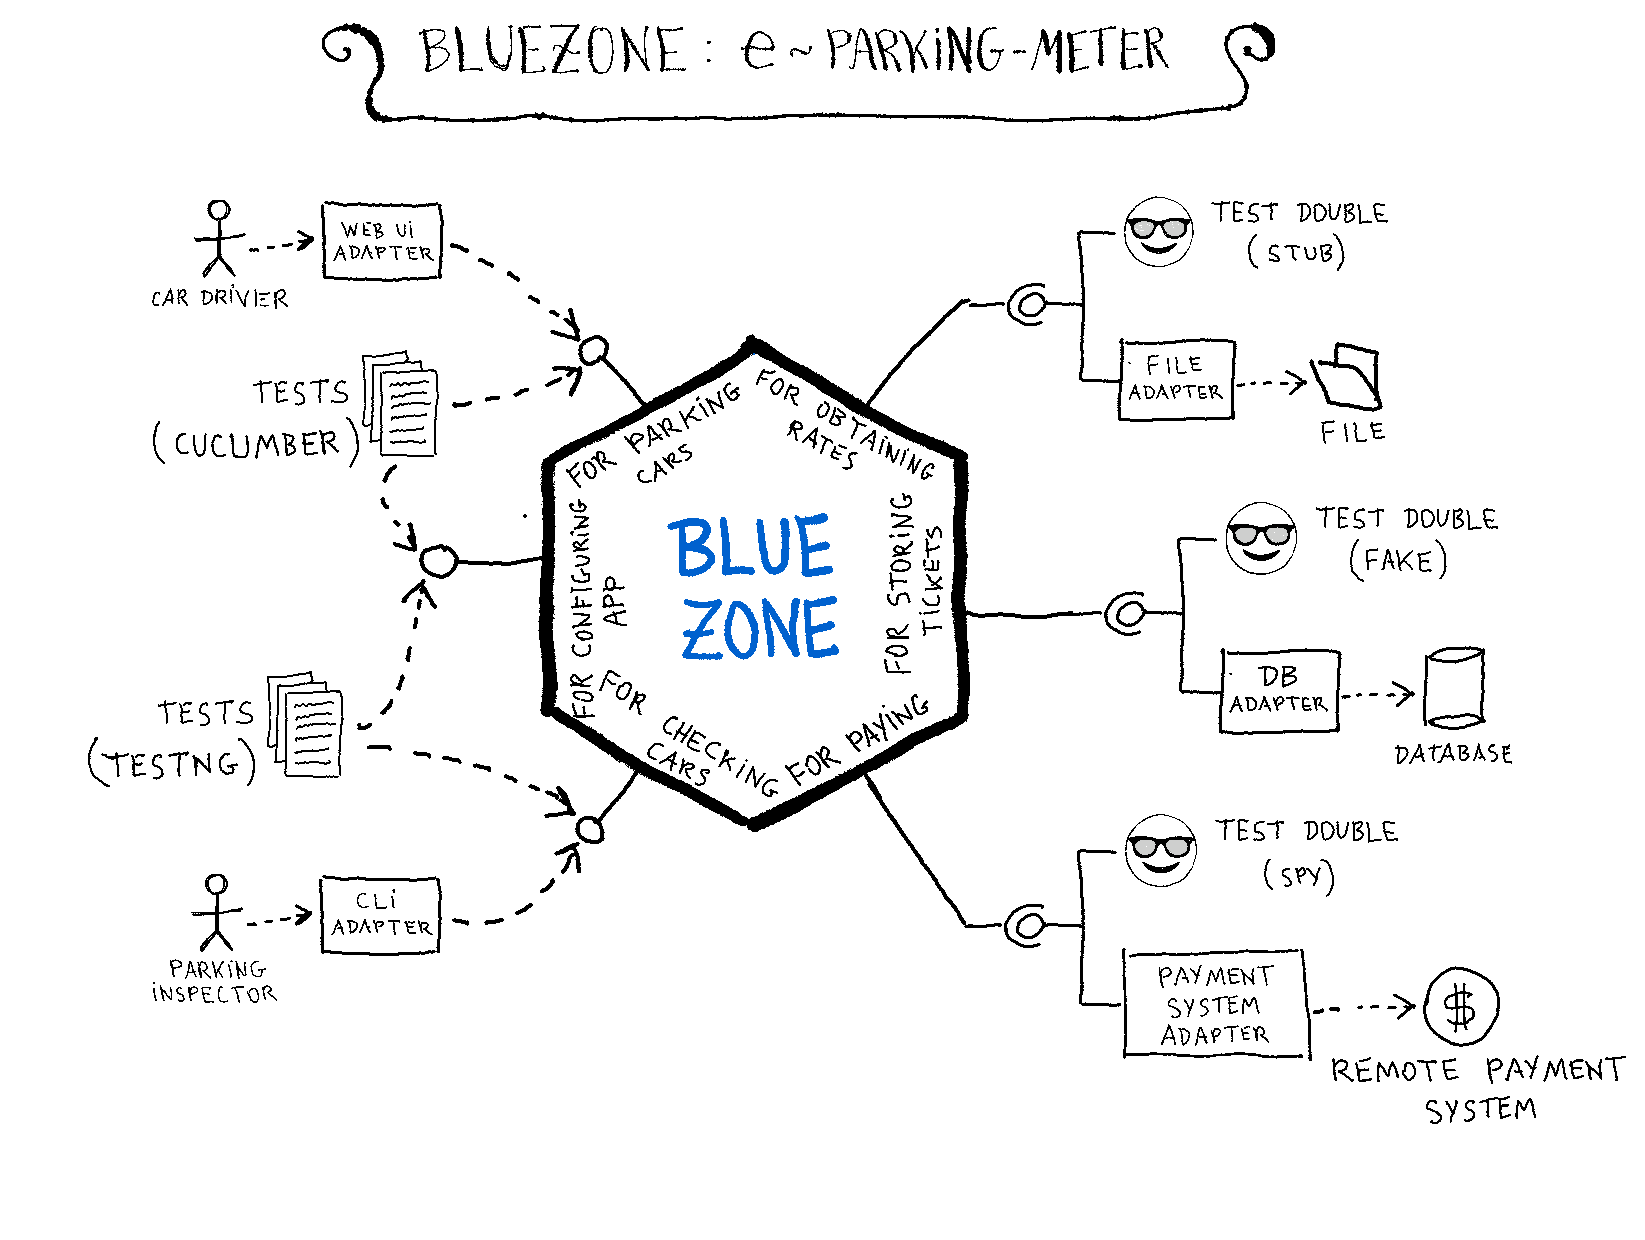 BLUEZONE: e~PARKiNG-METER
CAR DRiVER
WEB Ui
ADAPTER
TESTS
(CUCUMBER)
TESTS
(TESTNG)
PARKiNG
iNSPECTOR
CLi
ADAPTER
FOR PARKiNG
CARS
FOR CONFIGURiNG
APP
FOR CHECKiNG
CARS
BLUE
ZONE
FOR OBTAiNiNG
RATES
FOR STORiNG
TiCKETS
FOR PAYiNG
TEST DOUBLE
(STUB)
FILE
ADAPTER
FILE
TEST DOUBLE
(FAKE)
DB
ADAPTER
DATABASE
TEST DOUBLE
(SPY)
PAYMENT
SYSTEM
ADAPTER
$
REMOTE PAYMENT
SYSTEM